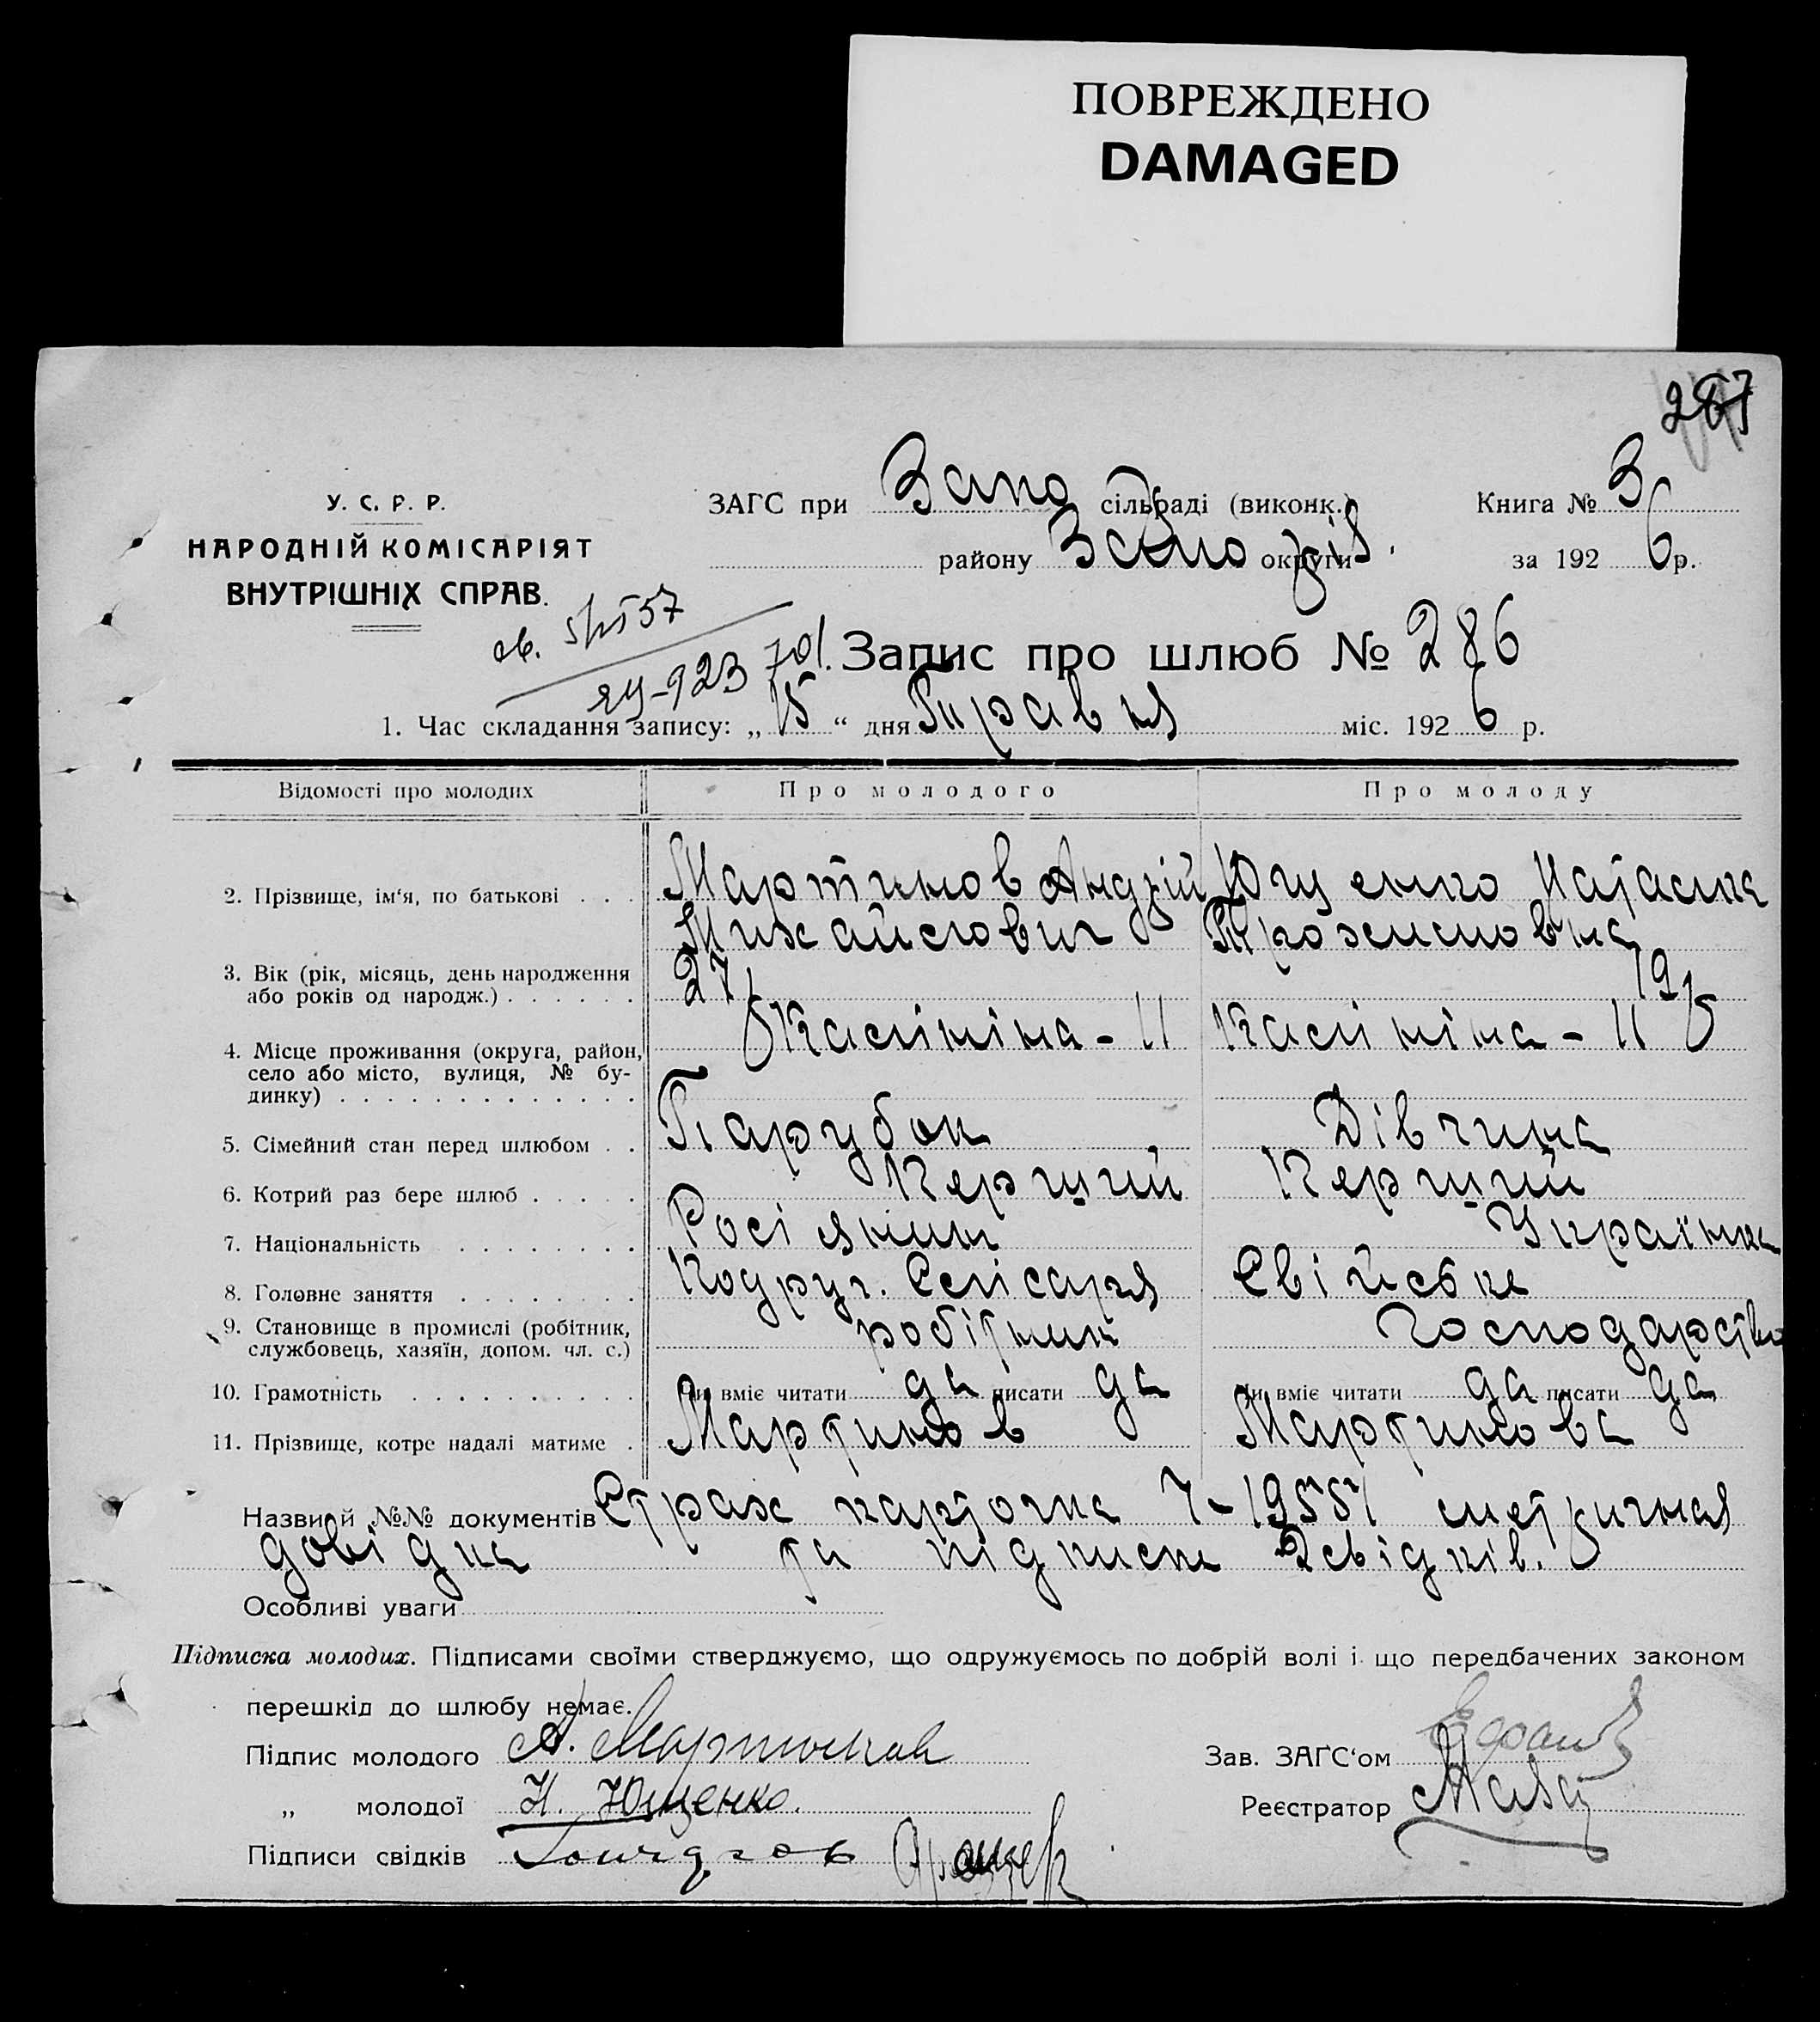 ПОВРЕЖДЕНО
DAMAGED
287
У. С. Р. Р.
НАРОДНІЙ КОМІСАРІЯТ
ВНУТРІШНІХ СПРАВ.
ЗАГС при Запо сільраді (виконк.)
району Запо округи
Книга № 3
за 1926 р.
701. Запис про шлюб № 286
1. Час складання запису: „15“ дня Травня міс. 1926 р.
Відомості про молодих
Про молодого
Про молоду
2. Прізвище, ім‘я, по батькові . . .
Мартинов Андрій
Михайлович
Ющенко Наталка
3. Вік (рік, місяць, день народження
або років од народж.) . . . . . .
27
19
4. Місце проживання (округа, район,
село або місто, вулиця, № бу-
динку) . . . . . . . . . . . . .
Калініна - 11
Калініна - 11
5. Сімейний стан перед шлюбом . .
Парубок
Дівчина
6. Котрий раз бере шлюб . . . . .
Перший
Перший
7. Національність . . . . . . . .
Росіянин
Українка
8. Головне заняття . . . . . . . .
Подруч. Слісаря
Свійське
9. Становище в промислі (робітник,
службовець, хазяїн, допом. чл. с.)
робітник
господарство
10. Грамотність . . . . . . . . . .
Чи вміє читати да писати да
Чи вміє читати да писати да
11. Прізвище, котре надалі матиме .
Мартинов
Мартинова
Назви й №№ документів Страх карточка метрична
довідка та підписка 2 свідків.
Особливі уваги
Підписка молодих. Підписами своїми стверджуємо, що одружуємось по добрій волі і що передбачених законом
перешкід до шлюбу немає.
Підпис молодого А. Мартинов
„ молодої Н. Ющенко.
Підписи свідків
Зав. ЗАГС‘ом
Реєстратор